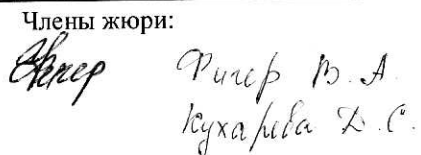 Члены жюри:
Фигер В. А.
Кухарева Д. С.